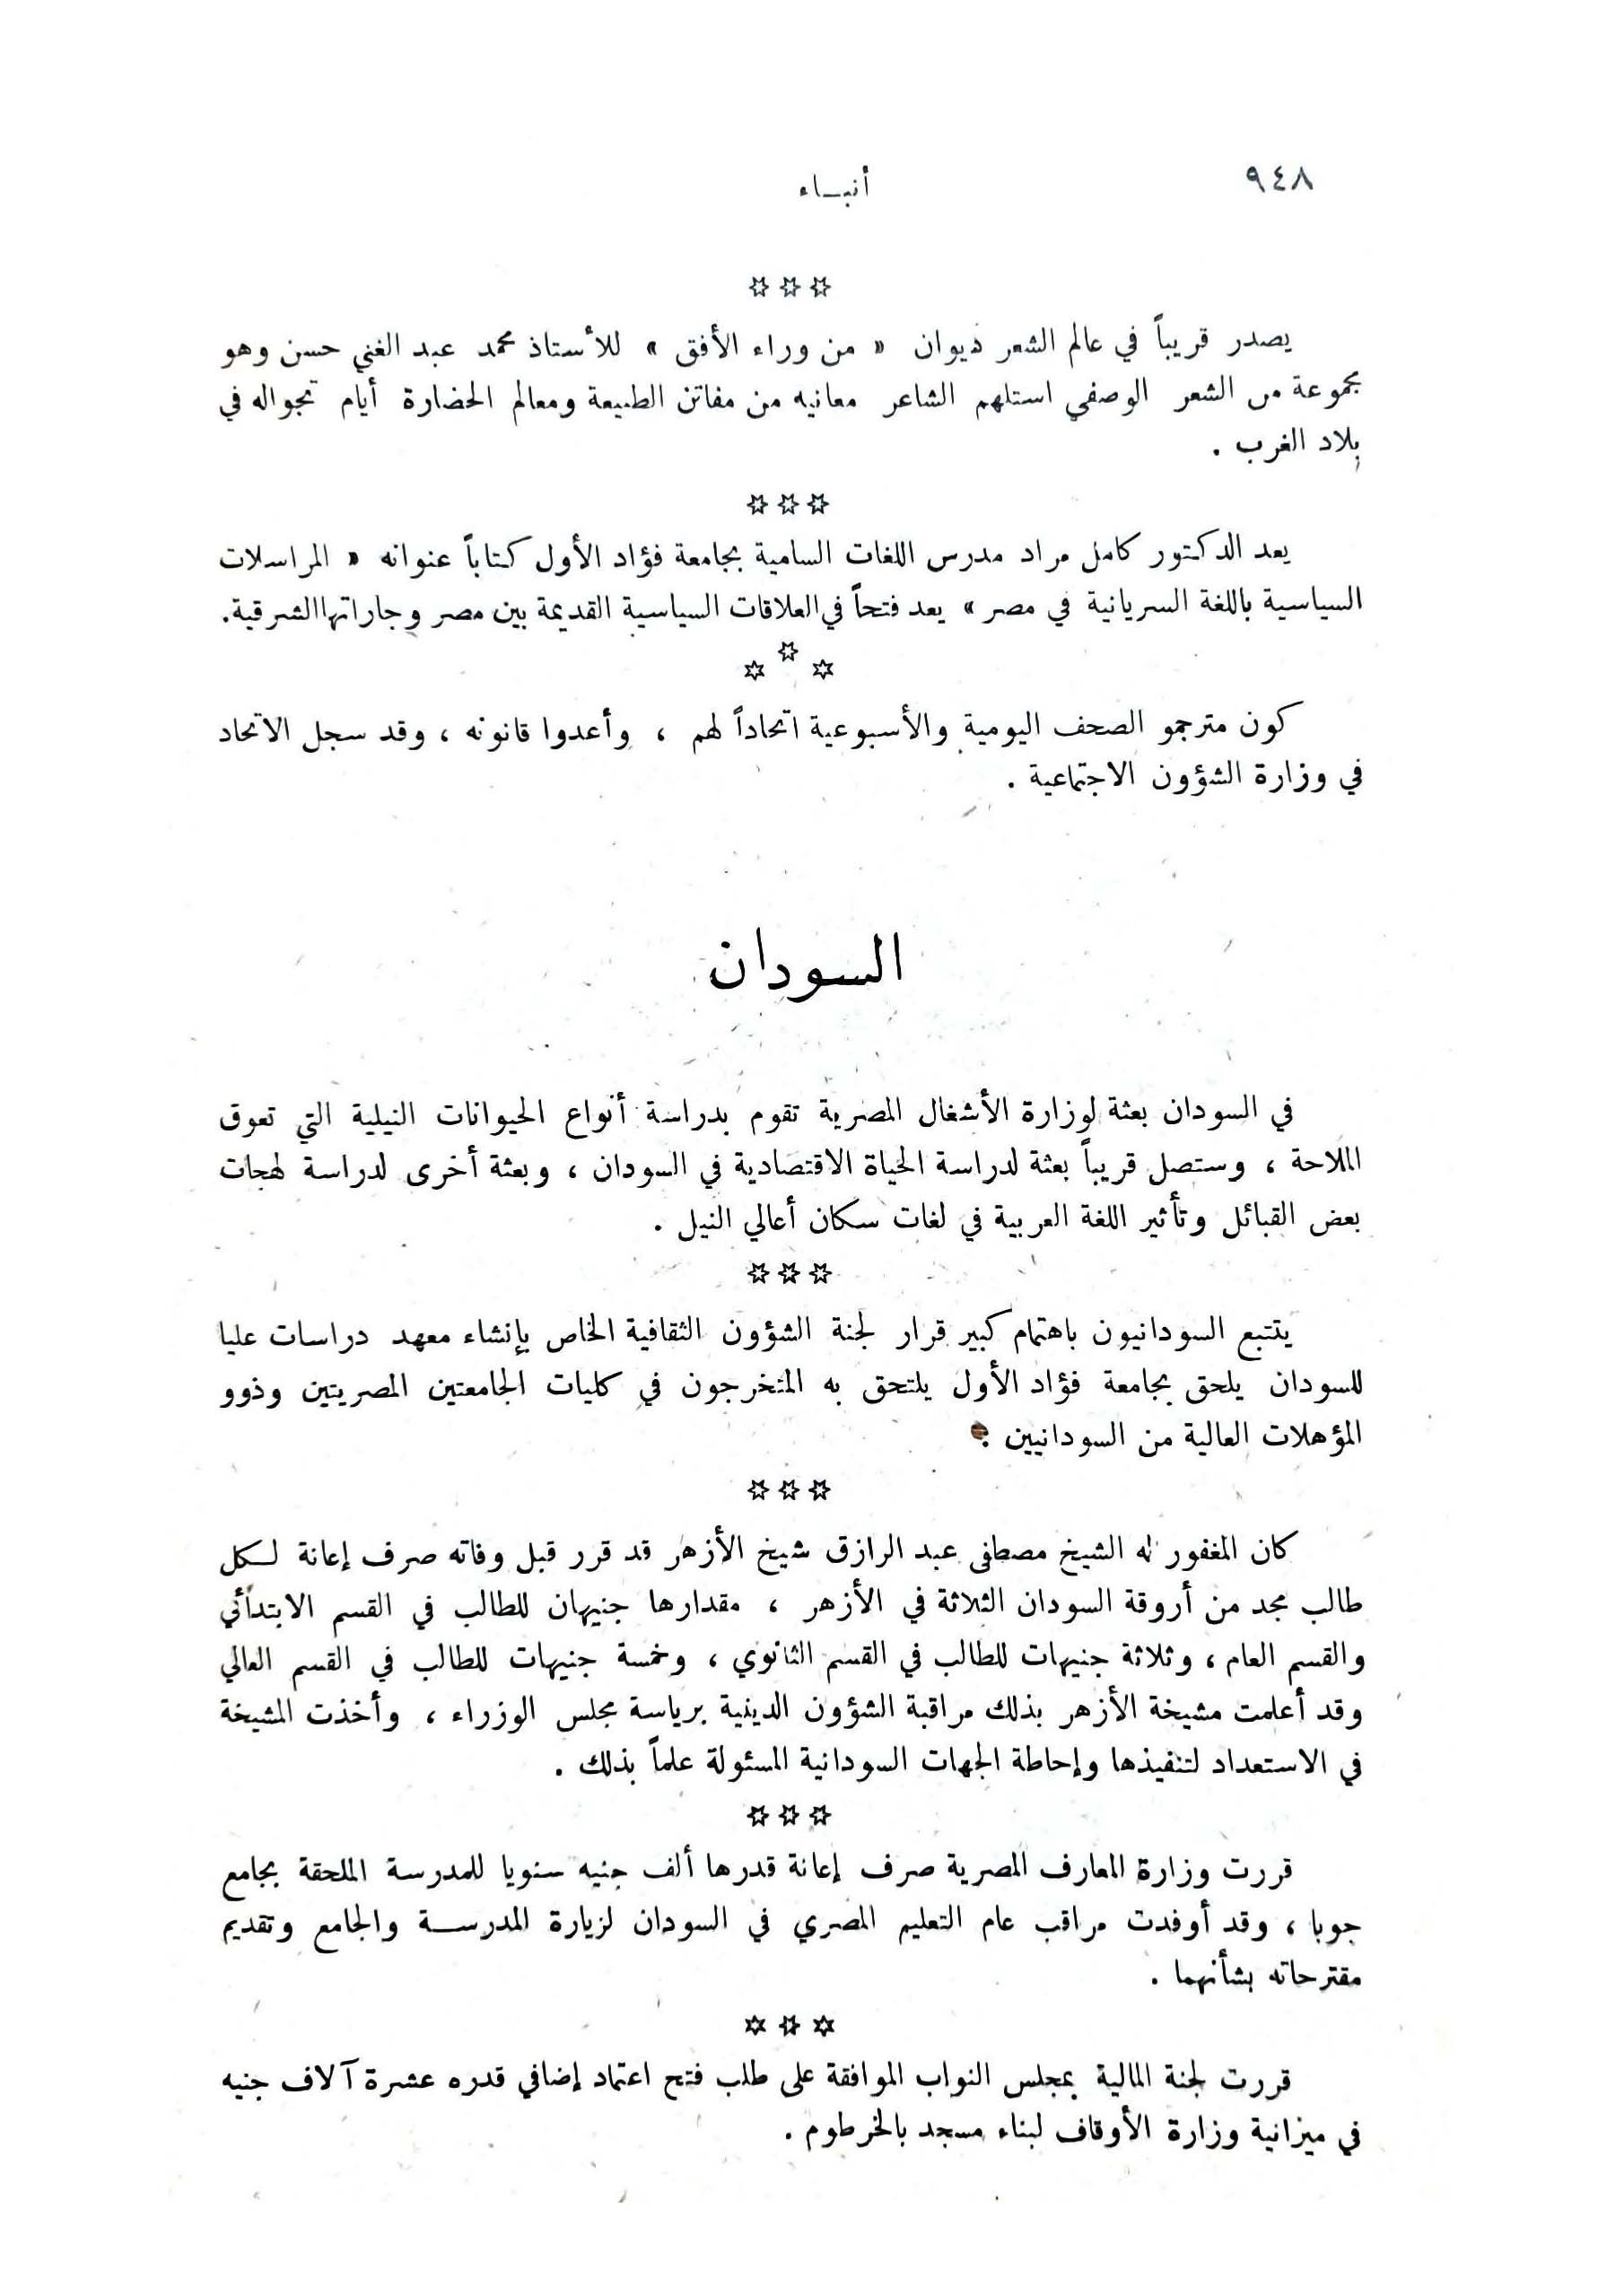 ٩٤٨
أنبـــاء
☆ ☆ ☆
يصدر قريباً في عالم الشعر ديوان « من وراء الأفق » للأستاذ محمد عبد الغني حسن وهو
مجموعة من الشعر الوصفي استلهم الشاعر معانيه من مفاتن الطبيعة ومعالم الحضارة أيام تجواله في
بلاد الغرب .
☆ ☆ ☆
يعد الدكتور كامل مراد مدرس اللغات السامية بجامعة فؤاد الأول كتاباً عنوانه « المراسلات
السياسية باللغة السريانية في مصر » يعد فتحاً في العلاقات السياسية القديمة بين مصر وجاراتها الشرقية.
☆ ☆ ☆
كون مترجمو الصحف اليومية والأسبوعية اتحاداً لهم ، وأعدوا قانونه ، وقد سجل الاتحاد
في وزارة الشؤون الاجتماعية .
السودان
في السودان بعثة لوزارة الأشغال المصرية تقوم بدراسة أنواع الحيوانات النيلية التي تعوق
الملاحة ، وستصل قريباً بعثة لدراسة الحياة الاقتصادية في السودان ، وبعثة أخرى لدراسة لهجات
بعض القبائل وتأثير اللغة العربية في لغات سكان أعالي النيل .
☆ ☆ ☆
يتتبع السودانيون باهتمام كبير قرار لجنة الشؤون الثقافية الخاص بإنشاء معهد دراسات عليا
للسودان يلحق بجامعة فؤاد الأول يلتحق به المتخرجون في كليات الجامعتين المصريتين وذوو
المؤهلات العالية من السودانيين .
☆ ☆ ☆
كان المغفور له الشيخ مصطفى عبد الرازق شيخ الأزهر قد قرر قبل وفاته صرف إعانة لكل
طالب مجد من أروقة السودان الثلاثة في الأزهر ، مقدارها جنيهان للطالب في القسم الابتدائي
والقسم العام ، وثلاثة جنيهات للطالب في القسم الثانوي ، وخمسة جنيهات للطالب في القسم العالي
وقد أعلمت مشيخة الأزهر بذلك مراقبة الشؤون الدينية برياسة مجلس الوزراء ، وأخذت المشيخة
في الاستعداد لتنفيذها وإحاطة الجهات السودانية المسئولة علماً بذلك .
☆ ☆ ☆
قررت وزارة المعارف المصرية صرف إعانة قدرها ألف جنيه سنويا للمدرسة الملحقة بجامع
جوبا ، وقد أوفدت مراقب عام التعليم المصري في السودان لزيارة المدرســة والجامع وتقديم
مقترحاته بشأنهما .
☆ ☆ ☆
قررت لجنة المالية بمجلس النواب الموافقة على طلب فتح اعتماد إضافي قدره عشرة آلاف جنيه
في ميزانية وزارة الأوقاف لبناء مسجد بالخرطوم .